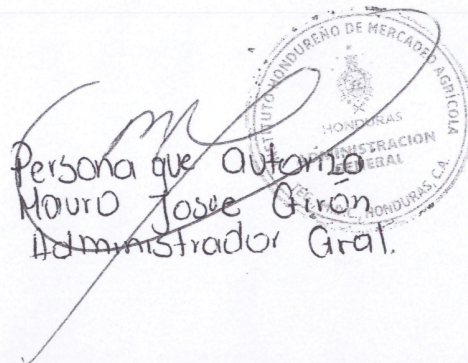 INSTITUTO HONDUREÑO DE MERCADEO AGRÍCOLA
HONDURAS
ADMINISTRACION
GENERAL
HONDURAS, C.A.
Persona que autorizo
Mauro Josue Girón
Administrador Gral.